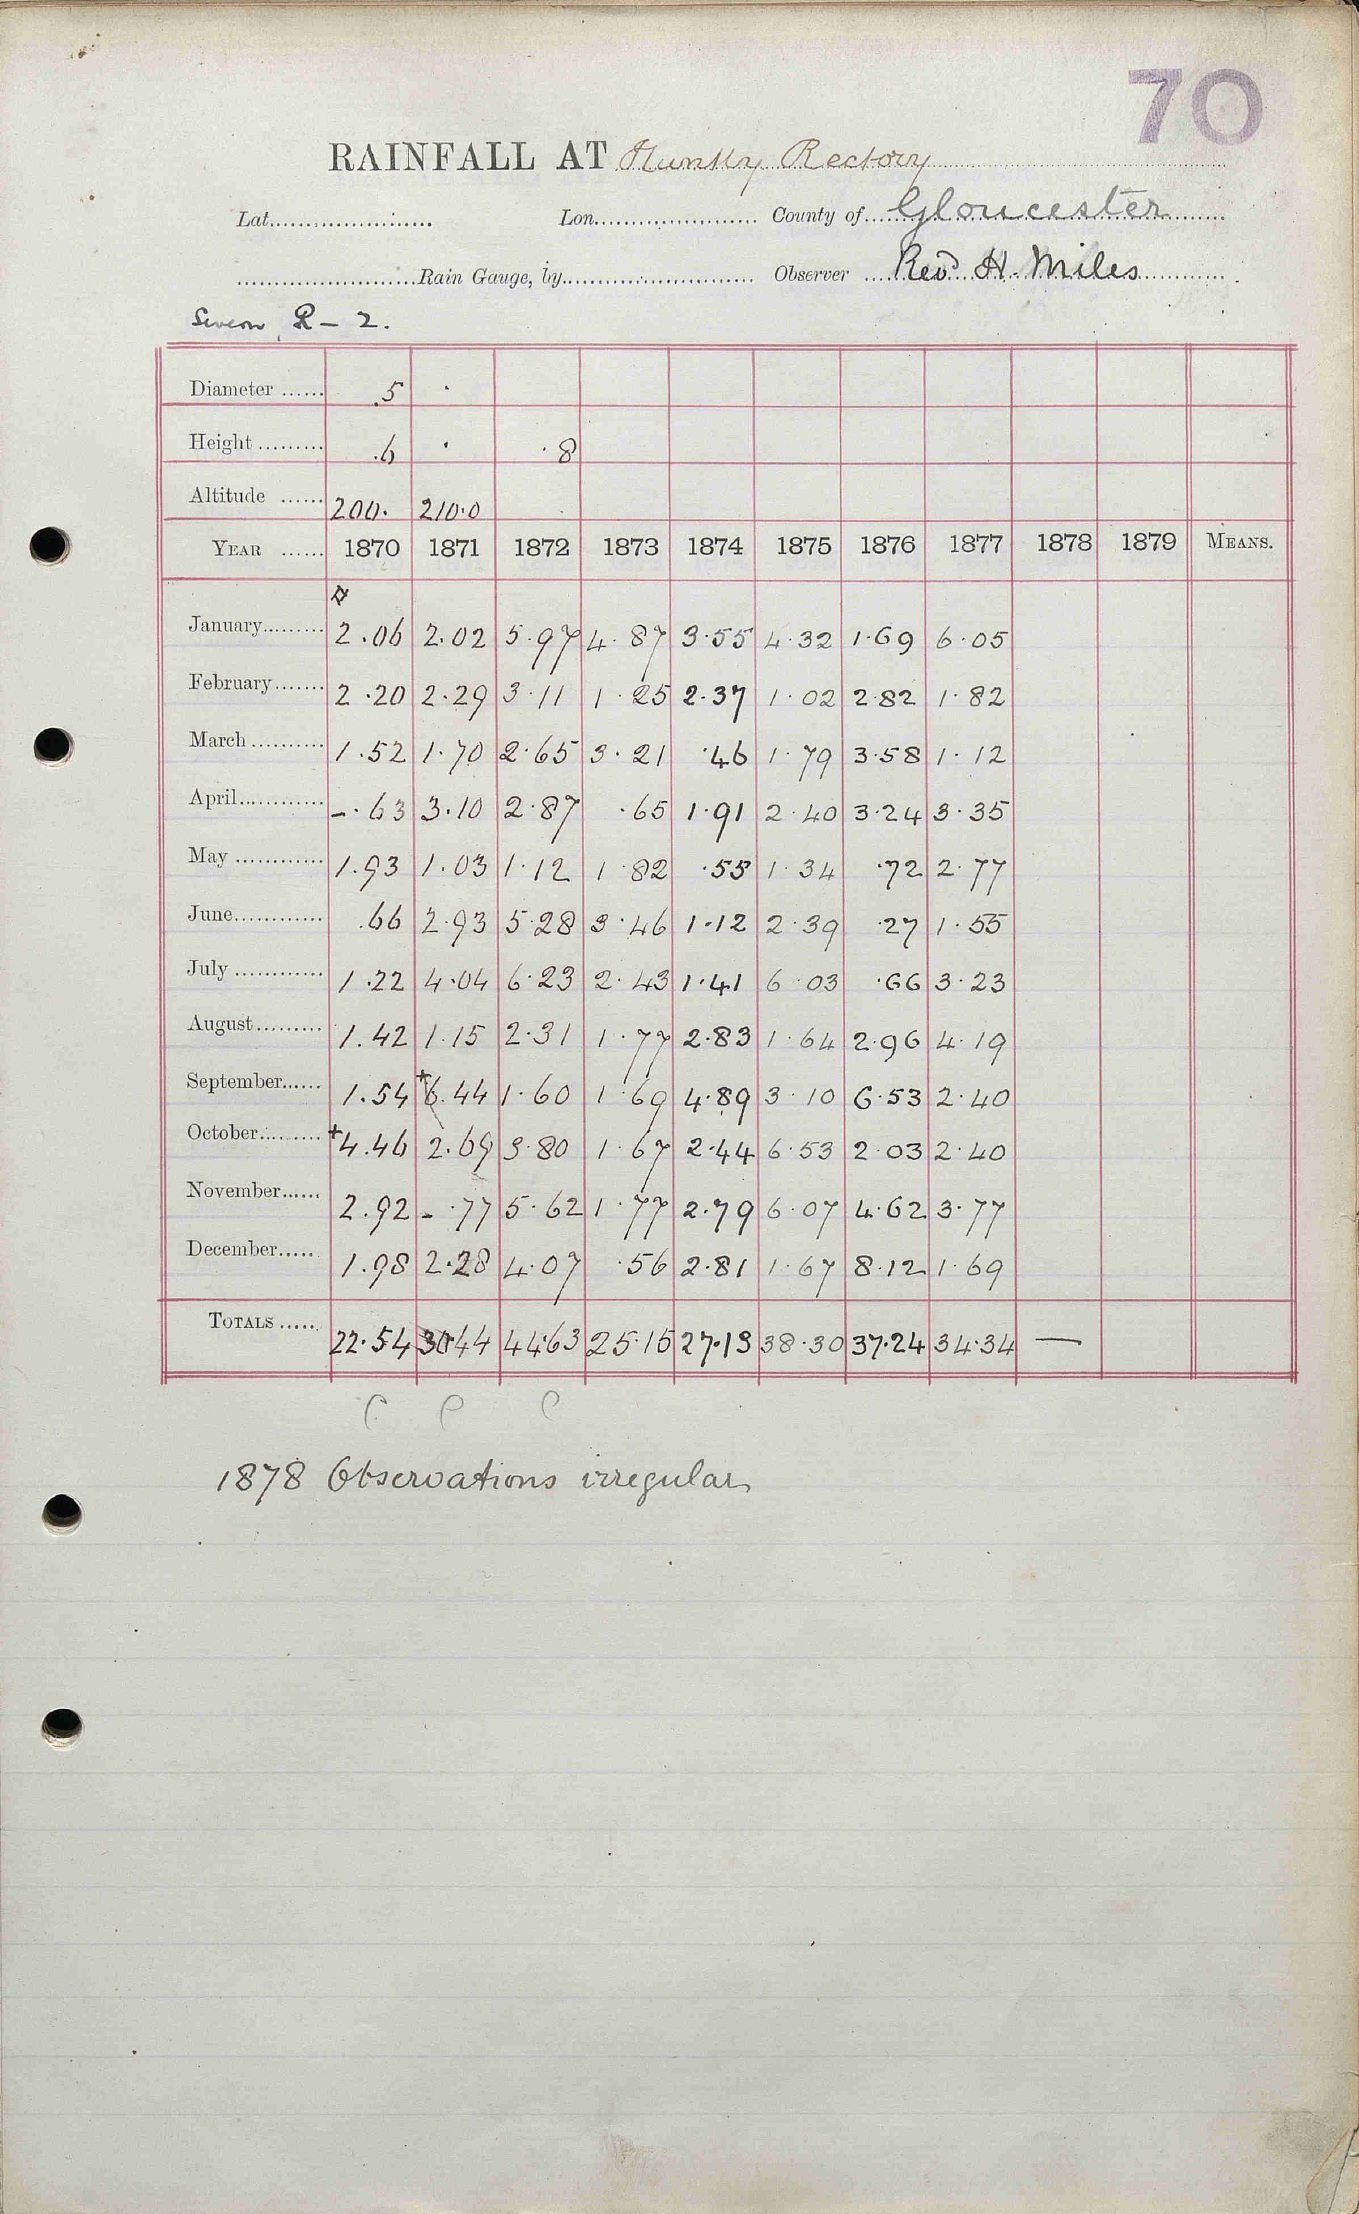 70
RAINFALL AT Huntley Rectory
Lat. Lon. County of Gloucester
Rain Gauge, by Observer Revd H. Miles
Severn R – 2.
Diameter 5 ·
Height .6 · ·8
Altitude 200. 210.0
YEAR 1870 1871 1872 1873 1874 1875 1876 1877 1878 1879 MEANS.
January 2.06 2.02 5.97 4.87 3.55 4.32 1.69 6.05
February 2.20 2.29 3.11 1.25 2.37 1.02 2.82 1.82
March 1.52 1.70 2.65 3.21 .46 1.79 3.58 1.12
April –.63 3.10 2.87 .65 1.91 2.40 3.24 3.35
May 1.93 1.03 1.12 1.82 .55 1.34 .72 2.77
June .66 2.93 5.28 3.46 1.12 2.39 .27 1.55
July 1.22 4.04 6.23 2.43 1.41 6.03 .66 3.23
August 1.42 1.15 2.31 1.77 2.83 1.64 2.96 4.19
September 1.54 +6.44 1.60 1.69 4.89 3.10 6.53 2.40
October +4.46 2.69 3.80 1.67 2.44 6.53 2.03 2.40
November 2.92 –.77 5.62 1.77 2.79 6.07 4.62 3.77
December 1.98 2.28 4.07 .56 2.81 1.67 8.12 1.69
TOTALS 22.54 30.44 44.63 25.15 27.13 38.30 37.24 34.34 —
1878 Observations irregular